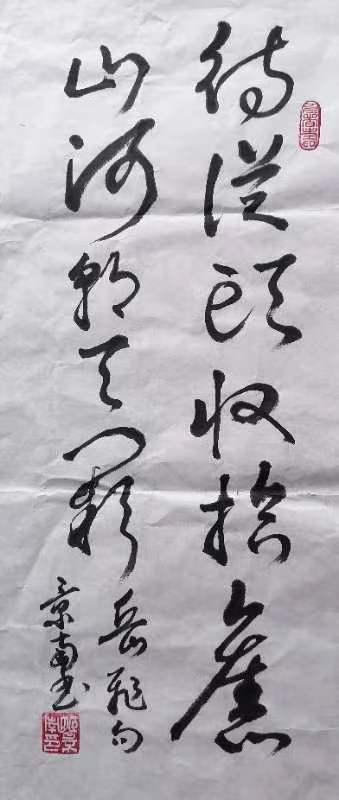 待從頭收拾舊
山河朝天闕
岳飛句
景南书